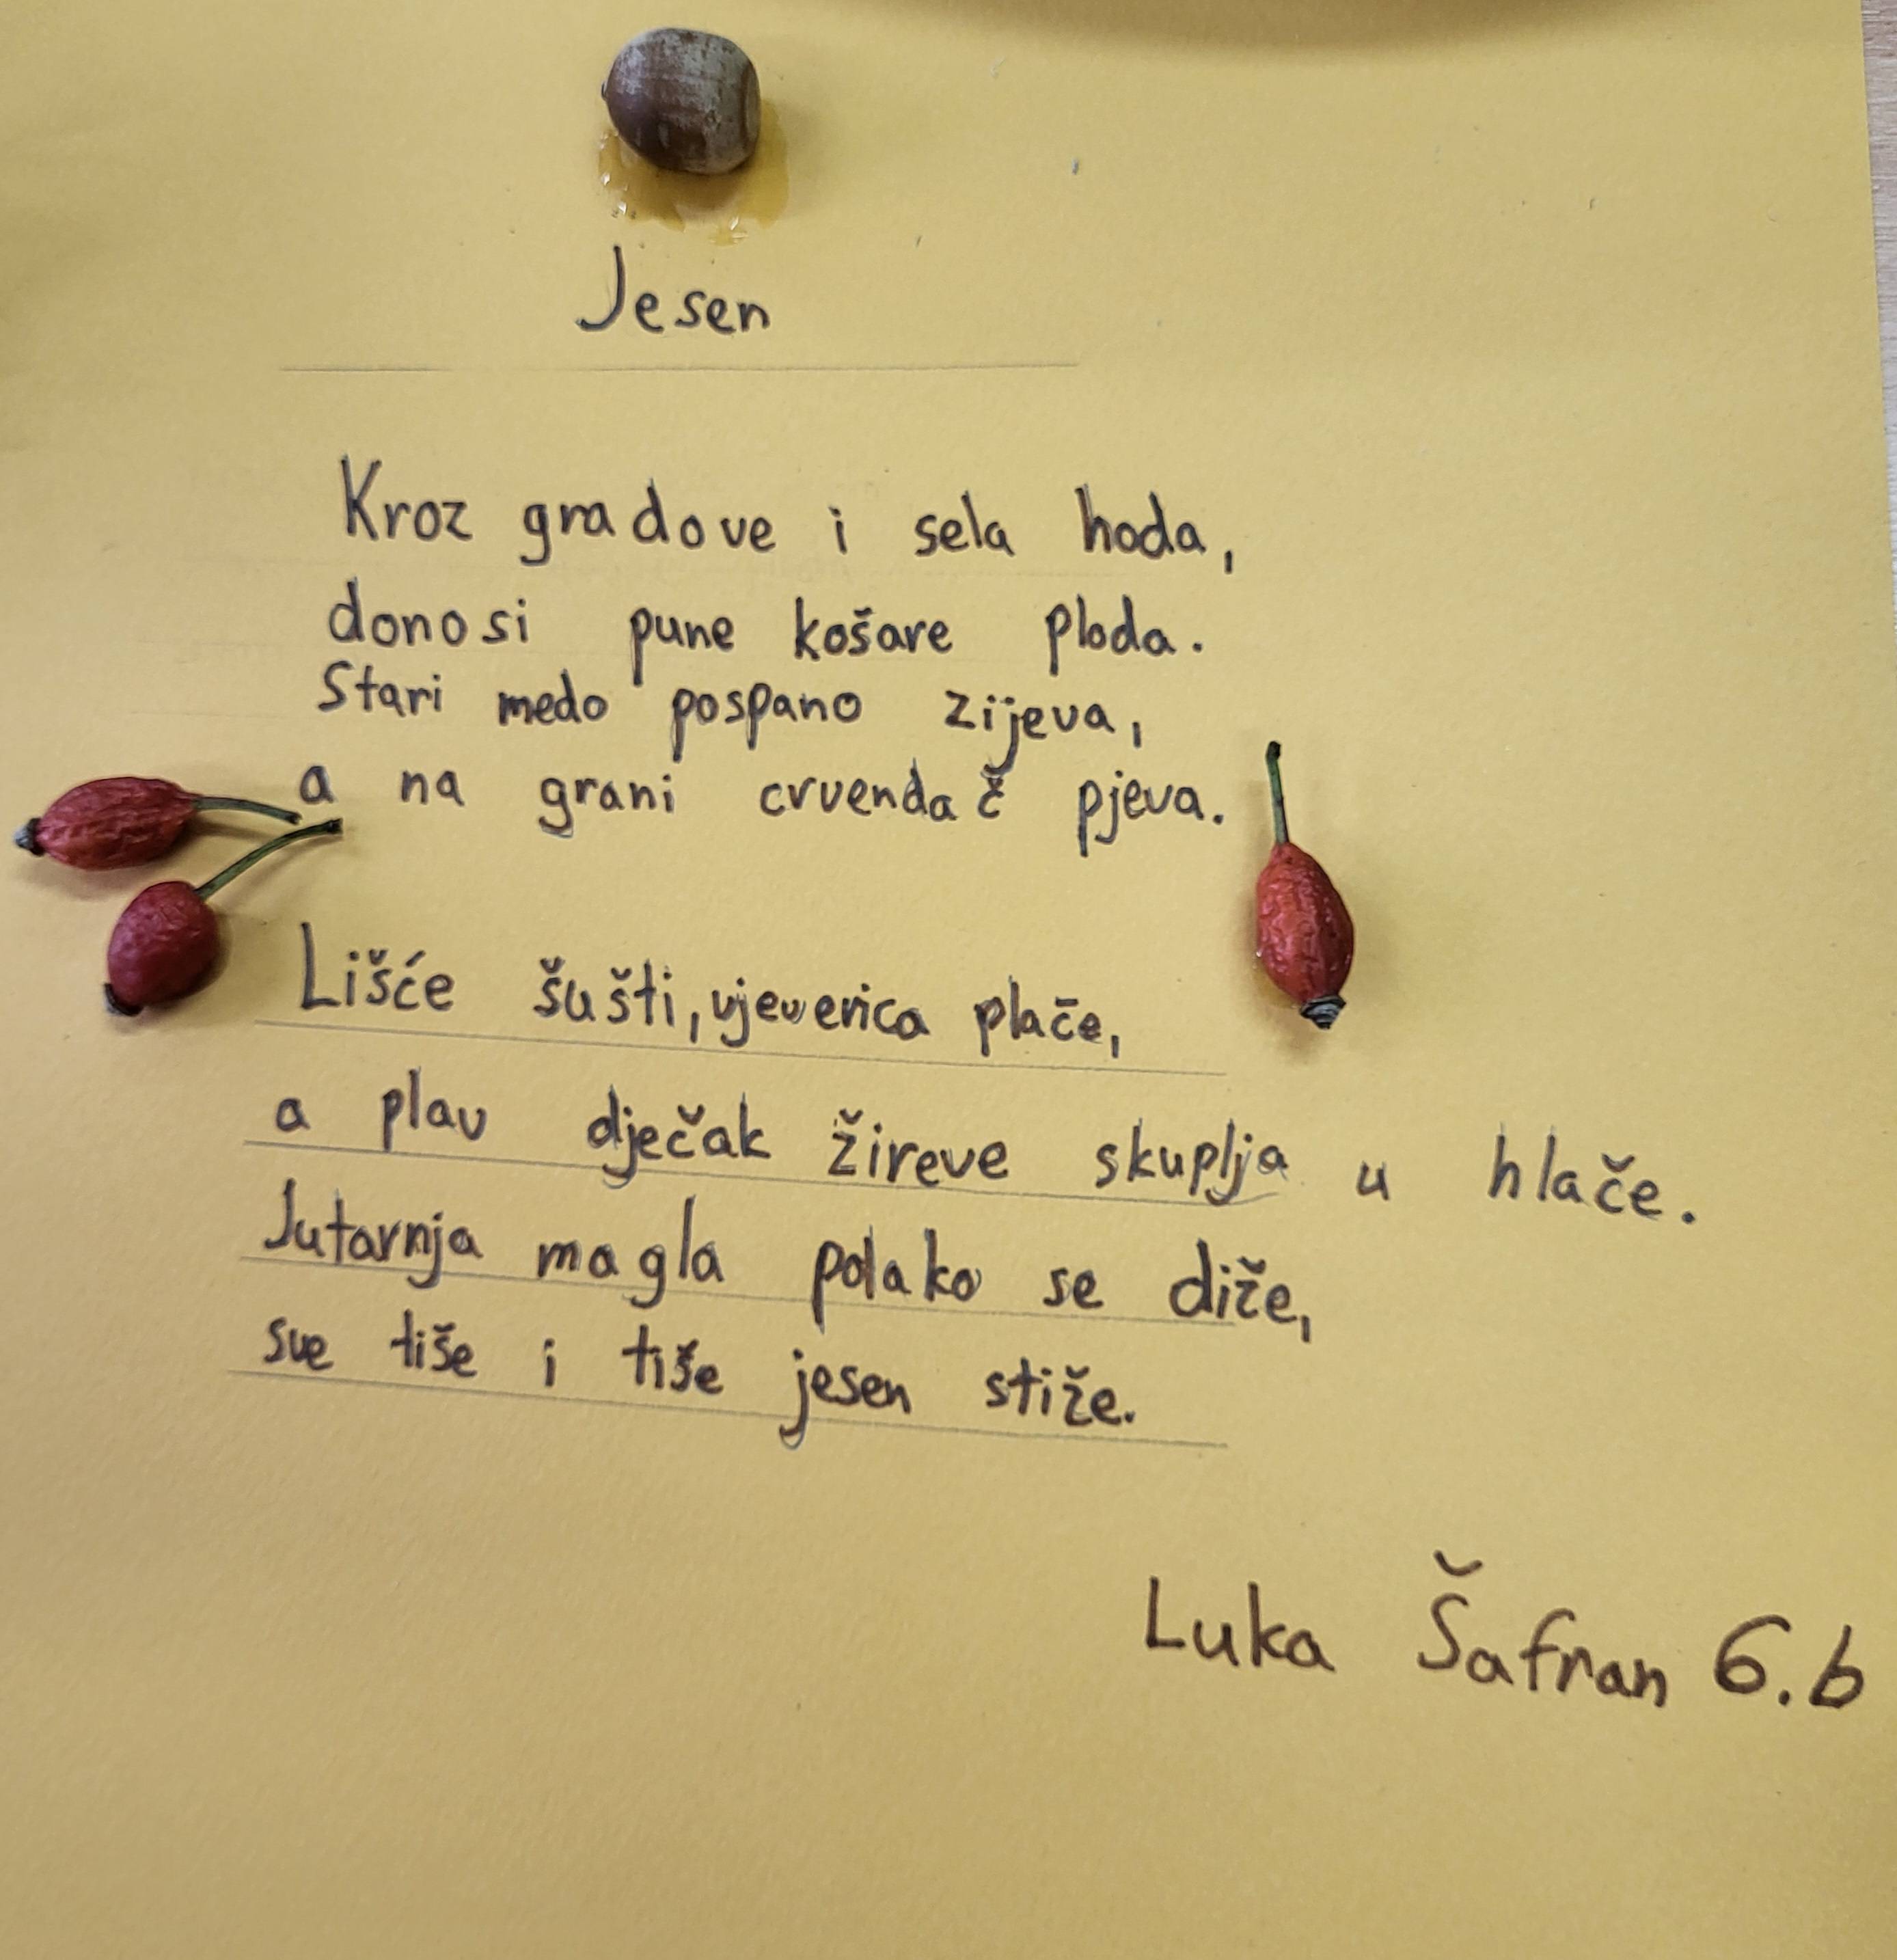 Jesen
Kroz gradove i sela hoda,
donosi pune košare ploda.
Stari medo pospano zijeva,
a na grani crvendač pjeva.
Lišće šušti, vjeverica plače,
a plav dječak žireve skuplja u hlače.
Jutarnja magla polako se diže,
sve tiše i tiše jesen stiže.
Luka Šafran 6.b